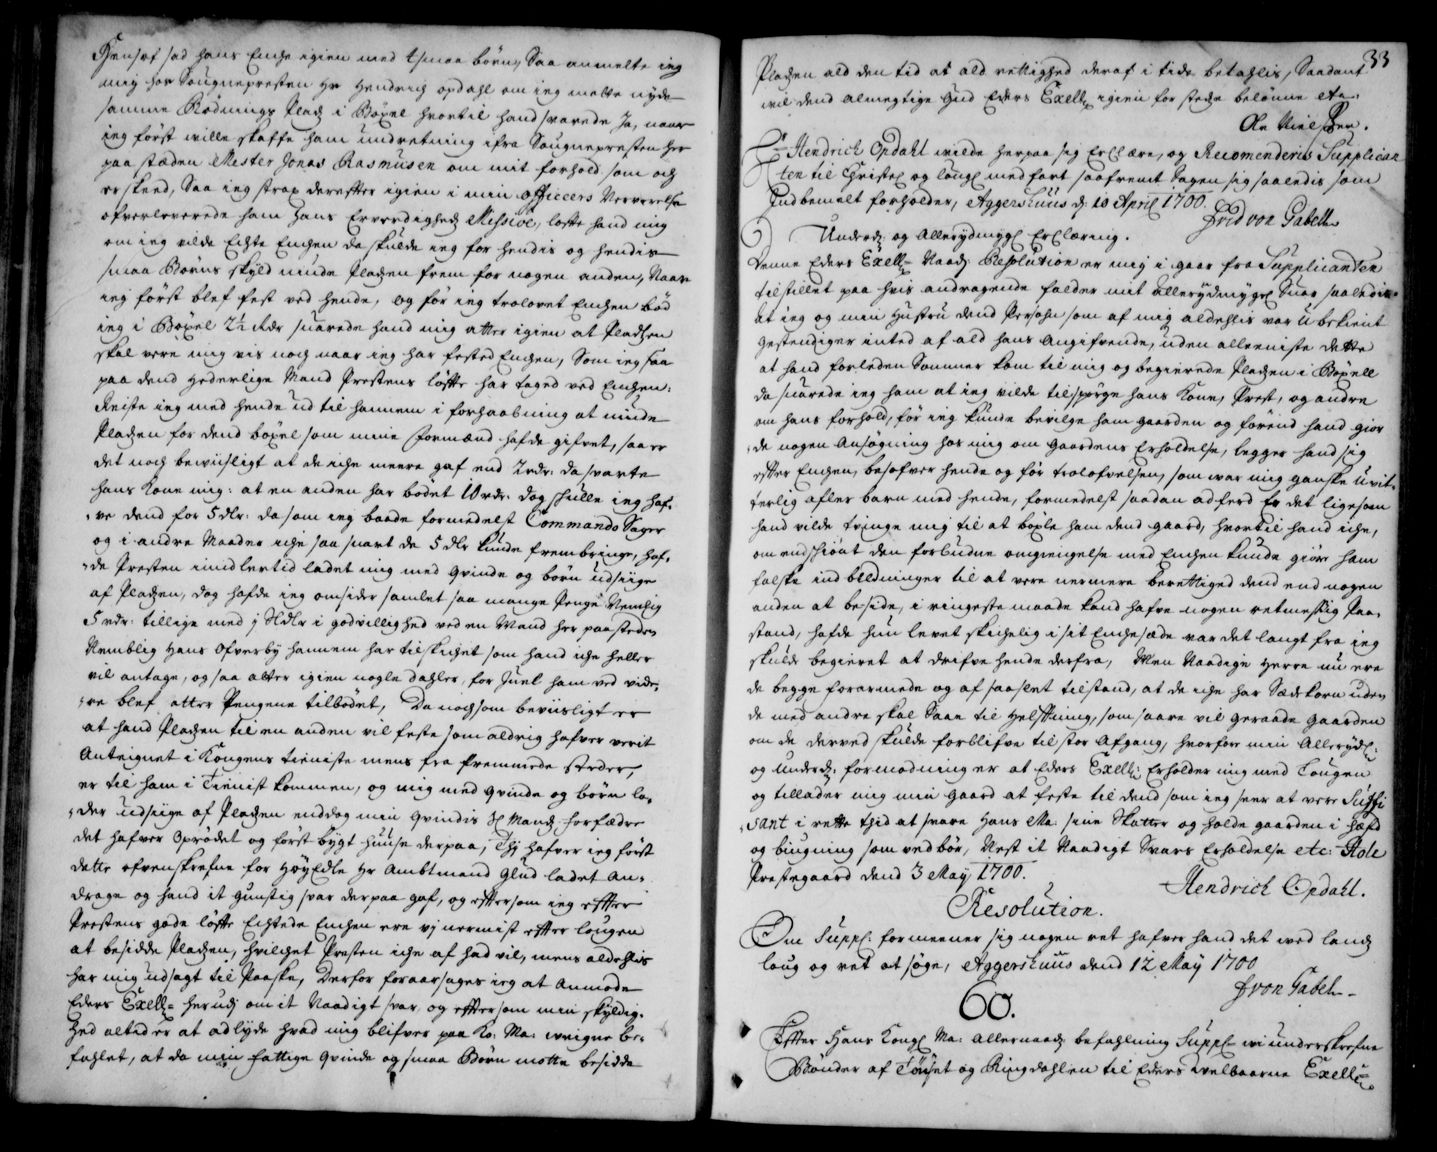 Hensof sad hans Encke igien med 4 smaa børn, Saa anmelte ieg
mig hos Sougnepresten Hr Hendrich opdahl om ieg motte nyde
samme Rødnings Plads i Bøxel hvortil hand svarede Ja, naar
ieg først wille skaffe ham undretning ifra Sougnepresten her
paa stæden Mester Jonas Rasmusen om mit forhold som och
er skeed, Saa ieg strax derefter igien i min officeers Nerverelse
ofverleverede ham hans Ervverdigheds Missive, lofte hand mig
om ieg vilde Echte Enchen da skulde ieg for hendis og hendis
smaa Børns skyld niude Pladsen frem for nogen anden, Naar
ieg først blef fest ved hende, og før ieg trolovet Enchen bød
ieg i Bøxel 2½ rdr svarede hand mig atter igien at Pladsen
skal være mig vis noch naar ieg har fested Enchen, Som ieg saa
paa dend hederlige Mand Prestens løfte har taged ved Enchen.
Reiste ieg med hende ud til hannem i forhaabning at niude
Pladsen for dend boxel som mine formænd hafde gifvet, saa er
det noch beviisligt at de iche meere gaf end 2 rdr: da svarte
hans Kone mig: at en anden har bødet 10 rdr: dog skulle ieg haf-
ve dend for 5 dlr: da som ieg baade formedelst Commando Sager
og i andre Maader iche saa snart de 5 dlr kunde frembringe, haf-
de Presten imidlertid ladet mig med Qvinde og børn udsiige
af Pladsen, dog hafde ieg omsider samlet saa mange Penge Nemlig
5 rdr: tillige med j Rdlr i godvillighed ved en Mand her paa steden
Nemblig Hans Ofverby hannem har tilskichet som hand iche heller
vil antage, og saa atter igien nogle daler, for Juel ham ved vide-
re blef atter Pengene tilbødet, Da noch som beviisligt er
at hand Pladsen til en anden vil feste som aldrig hafver verit
Anteignet i Kongens tieniste mens fra fremmede steder,
er til ham i Tienist kommen, og mig med qvinde og børn la-
der udsiige af Pladsen enddog min Qvindis Sl Mands forfædre
det hafver Oprødet og først bygt huuse derpaa, Thj hafver ieg først
dette ofvenskrefne for HøyEdle Hr Ambtmand Glud ladet An-
drage og hand it gunstig svar derpaa gaf, og eftersom ieg efter
Prestens gode løfte Echtede Enchen ere vj nermist efter lougen
at besidde Pladsen, hvilchet Presten iche af had vil, mens aldehlis
har mig udsagt til Paaske, Derfor foraarsages ieg at Anmode
Eders Excell: herudj om it Naadigt svar og eftersom min skyldig-
hed altid er at adlyde hvad mig blifver paa Ko: Ma: weigne be-
fahlet, at da min fattige Qvinde og smaa Børn motte besidde
33
Pladsen ald den tid at ald rettighed deraf i tide betahlis, Saadant
wil dend almegtige Gud Eders Excell igien for stede belønne etc:
Ole Nielsen.
Hr Hendrich Opdahl wilde herpaa sig Erclære, og Recomenderis Supplican-
ten til Christel og lougl med fart saafremt Sagen sig saaledis som
Indbemelt forholder, Aggershuus d 10 April 1700.
Frid von Gabell
Underd: og Allerydmygl Erclæring.
Denne Eders Excell Naadl Resolution er mig i gaar fra Supplicanten
tilstillet paa hvis andragende falder mit allerydmygst Svar saaledis
at ieg og min Hustru dend Persohn som af mig aldehlis var ubekient
gestendiger inted af ald hans Angifvende, uden alleeniste dette
at hand forleden Sommer kom til mig og begierede Pladsen i Bøxell
da svarede ieg ham at ieg vilde tilspørge hans Kone, Prest, og andre
om hans forhold, før ieg kunde bevilge ham gaarden og førend hand gior-
de nogen Ansøgning hos mig om Gaardens Erholdelse, legger hand sig
efter Enchen, besofver hende og før trolofvelsen, som war mig ganske uvit-
terlig afler barn med hende, formedelst saadan adferd Er det ligesom
hand vilde tvinge mig til at bøxle ham dend gaard, hvortil hand iche,
om endskiønt den forbudne omgiengelse med Enchen kunde giøre ham
falske indbildninger til at vere nermere berettiged dend end nogen
anden at beside, i ringeste maade kand hafve nogen retmessig Paa-
stand, hafde hun levet skichelig i sit Enchesæde var det langt fra ieg
skulde begieret at drifve hende derfra, Men Naadige Herre nu ere
de begge forarmede og af saa slet tilstand, at de iche har Sædekorn uden
de med andre skal Saae til Helftning, som saare vil geraade gaarden
om de derved skulde forblifve til stor Afgang, hvorfor min Alleryd:
og underd: formodning er at Eders Excell: Erholder mig med Lougen
og tillader mig min Gaard at feste til dend som ieg seer at vere Suffi-
sant i rette tjid at svare Hans Ma: sine Skatter og holde gaarden i hæfd
og biugning som ved bør, Nest it Naadigt Svars Erholdelse etc: Hole
Prestegaard dend 3 May 1700.
Hendrich Opdahl.
Resolution.
Om Suppl: formeener sig nogen ret hafver hand det wed lands
loug og ret at søge, Aggershuus dend 12 May 1700
F von Gabel
60.
Efter Hans Kongl Ma: Allernaads befahlning Suppl wi underskrefne
Bønder af Tøyset og Ringdahlen til Eders welbaarne Excell: